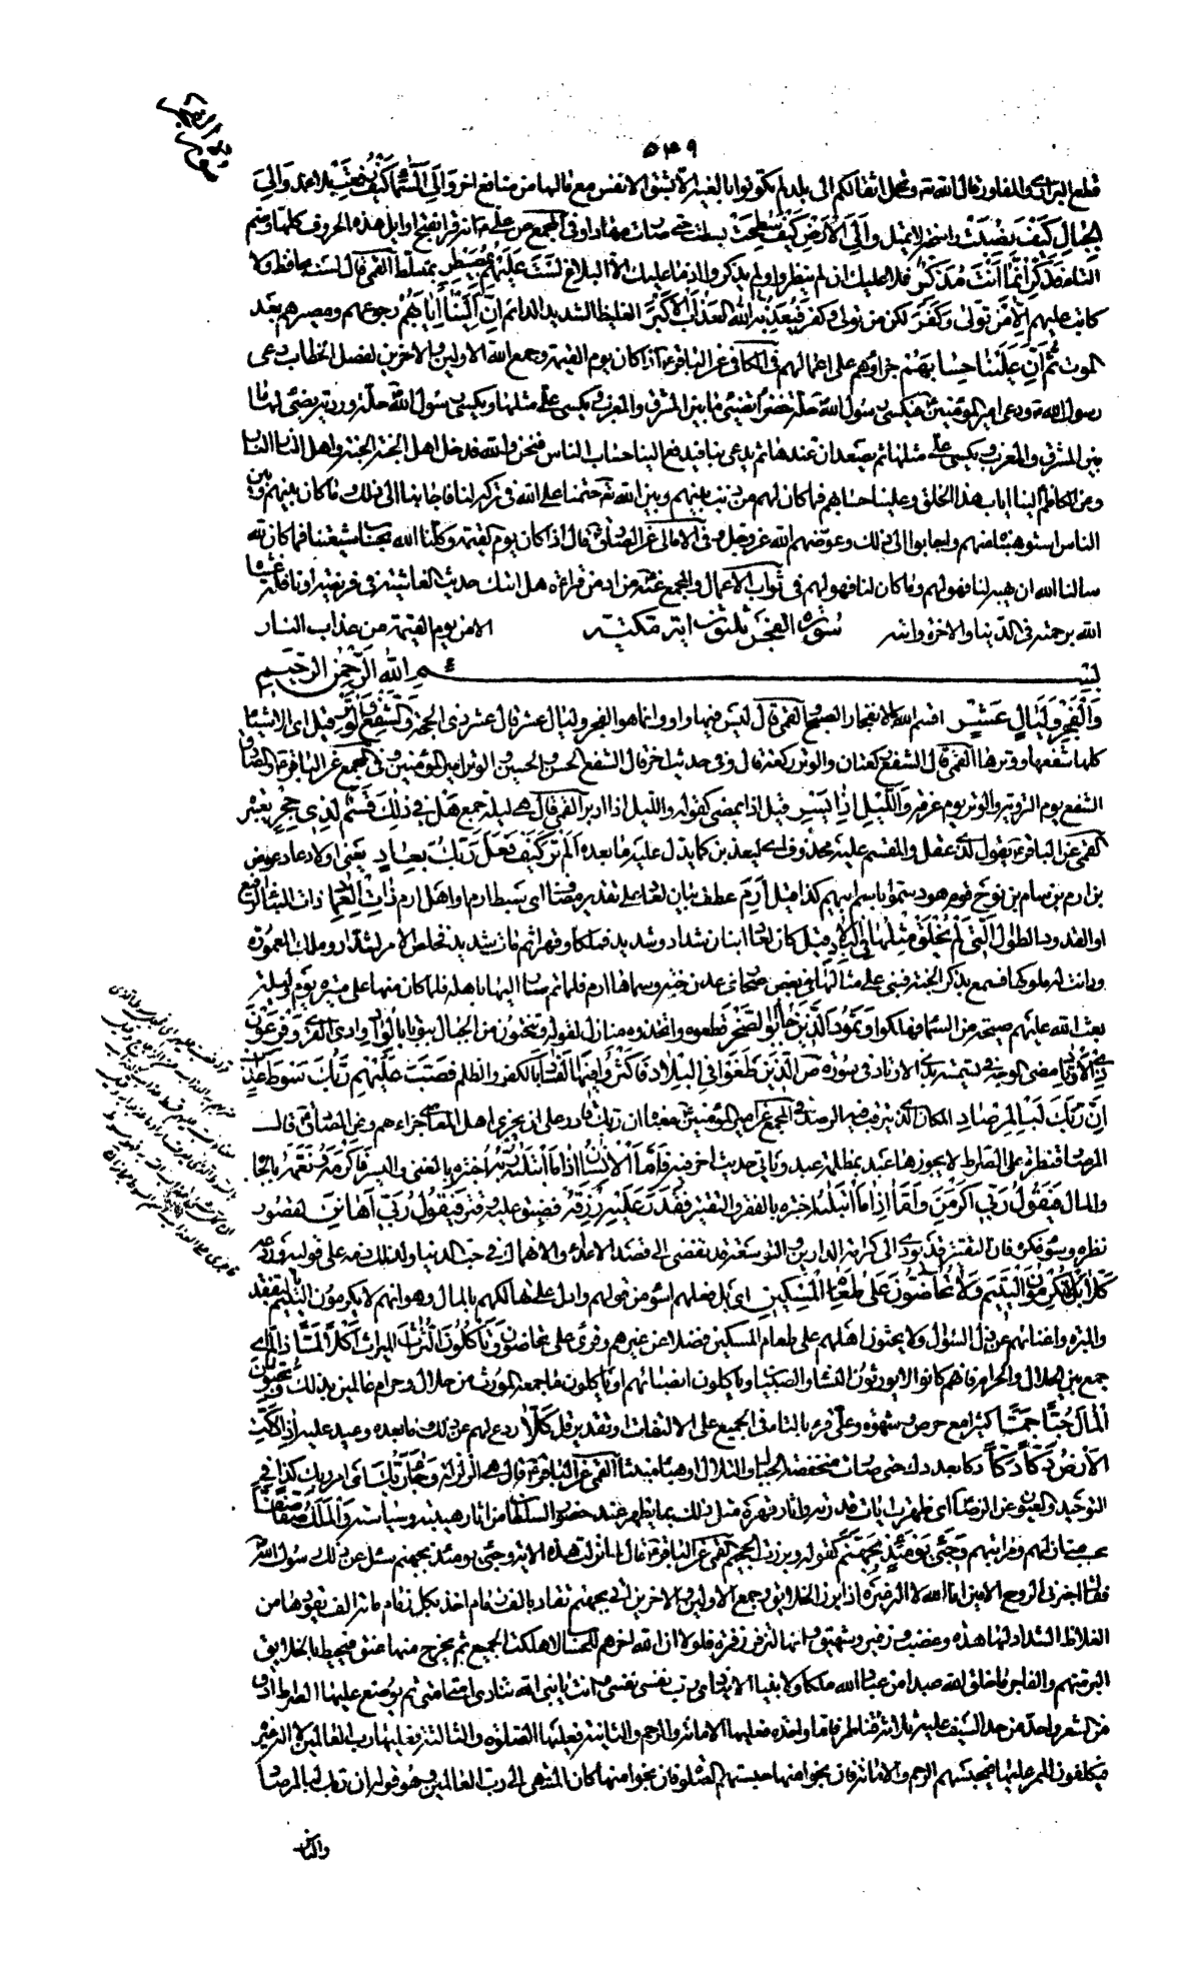 ٥٤٩
قطع البراري والمفاوز قال الله تعالى وتحمل اثقالكم الى بلد لم تكونوا بالغيه الا بشق الانفس مع مالها من منافع اخر وَاِلَى السَّمَاءِ كَيْفَ رُفِعَتْ بلا عمد وَاِلَى
الْجِبَالِ كَيْفَ نُصِبَتْ راسخة لا تميل وَاِلَى الْاَرْضِ كَيْفَ سُطِحَتْ بسطت حتى صارت مهادا وفى المجمع عن علي ع انه قرأ بفتح اوايل هذه الحروف كلها وضم
التاء فَذَكِّرْ اِنَّمَا اَنْتَ مُذَكِّرٌ فلا عليك ان لم ينظروا ولم يذكروا اذ ما عليك الا البلاغ لَسْتَ عَلَيْهِمْ بِمُصَيْطِرٍ بمتسلط القمى قال لست بحافظ ولا
كاتب عليهم اِلَّا مَنْ تَوَلَّى وَكَفَرَ لكن من تولى وكفر فَيُعَذِّبُهُ اللهُ الْعَذَابَ الْاَكْبَرَ الغليظ الشديد الدائم اِنَّ اِلَيْنَا اِيَابَهُمْ رجوعهم ومصيرهم بعد
الموت ثُمَّ اِنَّ عَلَيْنَا حِسَابَهُمْ جزاؤهم على اعمالهم فى الكافى عن الباقر ع اذا كان يوم القيمة وجمع الله الاولين والاخرين لفصل الخطاب دعى
رسول الله ص ودعى امير المؤمنين ع فيكسى رسول الله حلة خضراء تضئ ما بين المشرق والمغرب ويكسى علي ع مثلها ويكسى رسول الله حلة وردية يضئ لها ما
بين المشرق والمغرب ويكسى علي مثلها ثم يصعدان عندها ثم يدعى بنا فيدفع الينا حساب الناس فنحن والله ندخل اهل الجنة الجنة واهل النار النار
وعن الكاظم ع الينا اياب هذا الخلق وعلينا حسابهم فما كان لهم من ذنب بينهم وبين الله تعالى حتمنا على الله فى تركه لنا فاجابنا الى ذلك وما كان بينهم وبين
الناس استوهبناه منهم واجابوا الى ذلك وعوضهم الله عز وجل وفى الامالى عن الصادق ع قال اذا كان يوم القيمة وكلنا الله بحساب شيعتنا فما كان لله
سالنا الله ان يهبه لنا فهو لهم وما كان لنا فهو لهم فى ثواب الاعمال والمجمع عنه ع من ادمن قراءة هل اتيك حديث الغاشية فى فريضة او نافلة غشاه
الله برحمته فى الدنيا والاخرة واتاه الامن يوم القيمة من عذاب النار
سورة الفجر ثلثون اية مكية
بسم الله الرحمن الرحيم
وَالْفَجْرِ وَلَيَالٍ عَشْرٍ اقسم الله بانفجار الصبح القمى قال ليس فيها واو وانما هو الفجر وليال عشر قال عشر ذى الحجة وَالشَّفْعِ وَالْوَتْرِ قيل اى الاشياء
كلها شفعها ووترها القمى قال الشفع ركعتان والوتر ركعة قال وفى حديث اخر قال الشفع الحسن والحسين والوتر امير المؤمنين ع وفى المجمع عن الباقر والصادق
الشفع يوم التروية والوتر يوم عرفة وَاللَّيْلِ اِذَا يَسْرِ قيل اذا يمضى كقوله والليل اذا ادبر القمى قال هى ليلة جمع هَلْ فِي ذٰلِكَ قَسَمٌ لِذِي حِجْرٍ يعتبر
القمى عن الباقر ع يقول لذى عقل والمقسم عليه محذوف اى ليعذبن كما يدل عليه ما بعده اَلَمْ تَرَ كَيْفَ فَعَلَ رَبُّكَ بِعَادٍ يعنى اولاد عاد بن عوص
بن ارم بن سام بن نوح قوم هود سموا باسم ابيهم كذا قيل اِرَمَ عطف بيان لعاد على تقدير مضاف اى سبط ارم او اهل ارم ذَاتِ الْعِمَادِ ذات البناء الرفيع
او القدود الطوال الَّتِي لَمْ يُخْلَقْ مِثْلُهَا فِي الْبِلَادِ قيل كان لعاد ابنان شداد وشديد فملكا وقهرا ثم مات شديد فخلص الامر لشداد وملك المعمورة
ودانت له ملوكها فسمع بذكر الجنة فبنى على مثالها فى بعض صحارى عدن جنة وسماها ارم فلما تم سار اليها باهله فلما كان منها على مسيرة يوم وليلة
بعث الله عليهم صيحة من السماء فهلكوا وَثَمُودَ الَّذِينَ جَابُوا الصَّخْرَ قطعوه واتخذوه منازل لقوله وتنحتون من الجبال بيوتا بِالْوَادِ وادى القرى وَفِرْعَوْنَ
ذِي الْاَوْتَادِ مضى الوجه فى تسميته بذى الاوتاد فى سورة ص الَّذِينَ طَغَوْا فِي الْبِلَادِ فَاَكْثَرُوا فِيهَا الْفَسَادَ بالكفر والظلم فَصَبَّ عَلَيْهِمْ رَبُّكَ سَوْطَ عَذَابٍ
اِنَّ رَبَّكَ لَبِالْمِرْصَادِ المكان الذى يترقب فيه الرصد فى المجمع عن امير المؤمنين ع معناه ان ربك قادر على ان يجزى اهل المعاصى جزاءهم وعن الصادق ع قال
المرصاد قنطرة على الصراط لا يجوزها عبد بمظلمة عبد وياتى حديث اخر فيه فَاَمَّا الْاِنْسَانُ اِذَا مَا ابْتَلٰيهُ رَبُّهُ اختبره بالغنى واليسر فَاَكْرَمَهُ وَنَعَّمَهُ بالجاه
والمال فَيَقُولُ رَبِّي اَكْرَمَنِ وَاَمَّا اِذَا مَا ابْتَلٰيهُ اختبره بالفقر والتقتير فَقَدَرَ عَلَيْهِ رِزْقَهُ فضيق عليه وقتر فَيَقُولُ رَبِّي اَهَانَنِ لقصور
نظره وسوء فكره فان التقتير قد يؤدى الى كرامة الدارين والتوسعة قد تفضى الى قصد الاعداء والانهماك فى حب الدنيا ولذلك ذمه على قوليه وردعه
كَلَّا بَلْ لَا تُكْرِمُونَ الْيَتِيمَ وَلَا تَحَاضُّونَ عَلَى طَعَامِ الْمِسْكِينِ اى بل فعلهم اسوء من قولهم وادل على تهالكهم بالمال وهو انهم لا يكرمون اليتيم بالنفقة
والمبرة واغنائهم عن ذل السؤال ولا يحثون اهلهم على طعام المسكين فضلا عن غيرهم وقرئ على تحاضون وَتَأْكُلُونَ التُّرَاثَ الميراث اَكْلًا لَمًّا ذا لم اى
جمع بين الحلال والحرام فانهم كانوا لا يورثون النساء والصبيان وياكلون انصبائهم او ياكلون ما جمعه المورث من حلال وحرام عالمين بذلك وَتُحِبُّونَ
الْمَالَ حُبًّا جَمًّا كثيرا مع حرص وشهوة وقرء بالتاء فى الجميع على الالتفات او تقدير قل كَلَّا ردع لهم عن ذلك وما بعده وعيد عليه اِذَا دُكَّتِ
الْاَرْضُ دَكًّا دَكًّا دكا بعد دك حتى صارت منخفضة الجبال والتلال او هباء منبثا القمى عن الباقر ع قال هى الزلزلة وَجَاءَ رَبُّكَ اى امر ربك كذا فى
التوحيد والعيون عن الرضا ع اى ظهرت ايات قدرته واثار قهره مثل ذلك بما يظهر عند حضور السلطان من اثار هيبته وسياسته وَالْمَلَكُ صَفًّا صَفًّا
بحسب منازلهم ومراتبهم وَجِيءَ يَوْمَئِذٍ بِجَهَنَّمَ كقوله وبرزت الجحيم القمى عن الباقر ع قال لما نزلت هذه الاية وجئ يومئذ بجهنم سئل عن ذلك رسول الله ص
فقال اخبرنى الروح الامين ان الله لا اله غيره اذا ابرز الخلايق وجمع الاولين والاخرين اتى بجهنم تقاد بالف زمام اخذ بكل زمام مائة الف يقودها من
الغلاظ الشداد لها هدة وغضب وزفير وشهيق وانها لتزفر زفرة فلولا ان الله اخرهم للحساب لاهلكت الجميع ثم يخرج منها عنق فيحيط بالخلايق
البر منهم والفاجر ما خلق الله عبدا من عباد الله ملكا ولا نبيا الا ينادى رب نفسى نفسى وانت يا نبى الله تنادى امتى امتى ثم يوضع عليها الصراط ادق
من الشعر واحد من حد السيف عليه ثلاث قناطر فاما واحدة فعليها الامانة والرحم والثانية فعليها الصلوة والثالثة فعليها رب العالمين لا اله غيره
فيكلفون الممر عليها فيحبسهم الرحم والامانة فان نجوا منها حبستهم الصلوة فان نجوا منها كان المنتهى الى رب العالمين وهو قوله ان ربك لبالمرصاد
والناس